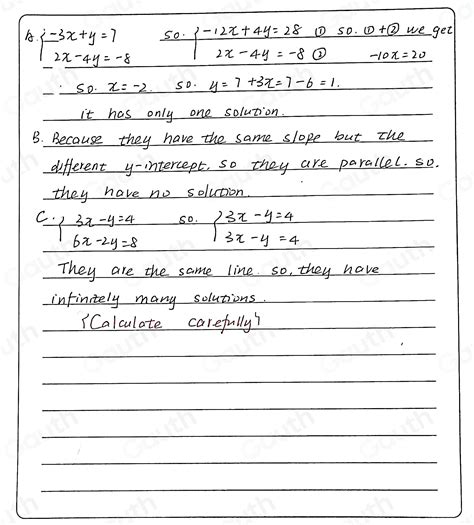 A. { -3x+y=7   so. { -12x+4y=28 ① so. ①+② we get
2x-4y=-8   2x-4y=-8 ②   -10x=20
so. x=-2. so. y=7+3x=7-6=1.
it has only one solution.
B. Because they have the same slope but the
different y-intercept. so they are parallel. so.
they have no solution.
C. { 3x-y=4   so. { 3x-y=4
6x-2y=8   3x-y=4
They are the same line. so, they have
infinitely many solutions.
{Calculate carefully}